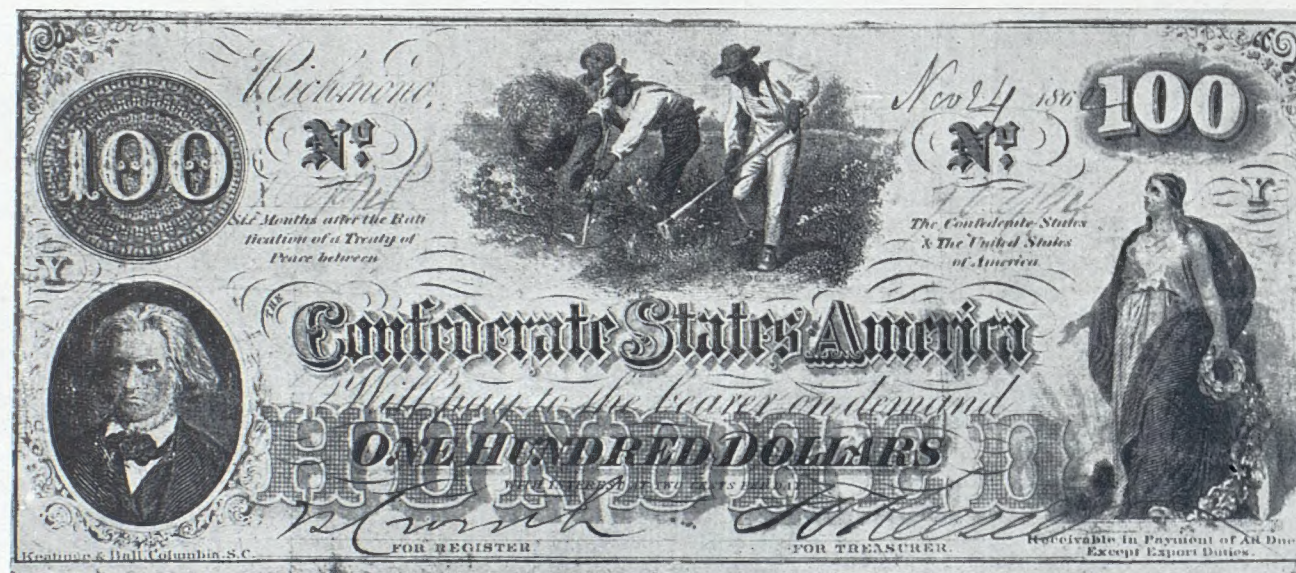 Richmond, Nov 24 186
100 100
No. No.
Six Months after the Rati
fication of a Treaty of
Peace between
The Confederate States
& The United States
of America
Y Y
THE
Confederate States America
Will pay to the bearer on demand
HUNDRED
ONE HUNDRED DOLLARS
WITH INTEREST AT TWO CENTS PER DAY
FOR REGISTER. FOR TREASURER.
Keatinge & Ball, Columbia, S.C.
Receivable in Payment of All Dues
Except Export Duties.